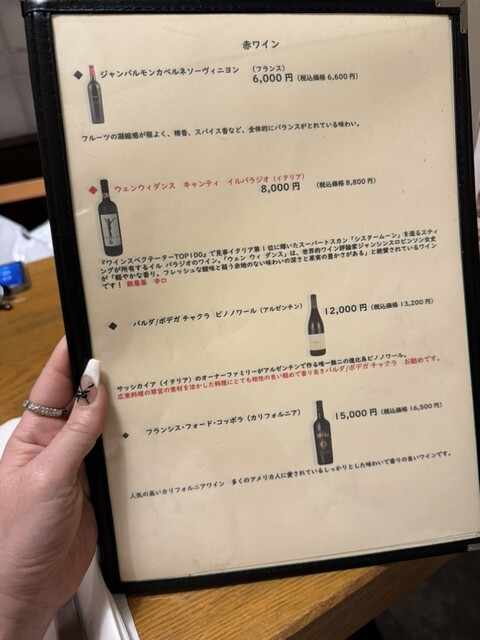 赤ワイン
◆ ジャンバルモンカベルネソーヴィニヨン （フランス）
6,000円（税込価格 6,600円）
フルーツの凝縮感が程よく、樽香、スパイス香など、全体的にバランスがとれている味わい。
◆ ウェンウィダンス キャンティ イルパラジオ（イタリア）
8,000円 （税込価格 8,800円）
『ワインスペクテーターTOP100』で見事イタリア第1位に輝いたスーパートスカン「シスタームーン」を造るスティ
ングが所有するイル パラジオのワイン。「ウェン ウィ ダンス」は、世界的ワイン評論家ジャンシスロビンソン女史
が「軽やかな香り。フレッシュな酸味と疑う余地のない味わいの深さと果実の豊かさがある」と絶賛されているワイン
です！ 無農薬 辛口
◆ バルダ/ボデガ チャクラ ピノノワール（アルゼンチン） 12,000円（税込価格 13,200円）
サッシカイア（イタリア）のオーナーファミリーがアルゼンチンで作る唯一無二の進化系ピノノワール。
広東料理の草宮の素材を活かした料理にとても相性の良い軽めで香り良きバルダ/ボデガ チャクラ お勧めです。
◆ フランシス・フォード・コッポラ（カリフォルニア） 15,000円（税込価格 16,500円）
人気の高いカリフォルニアワイン 多くのアメリカ人に愛されているしっかりとした味わいで香りの良いワインです。